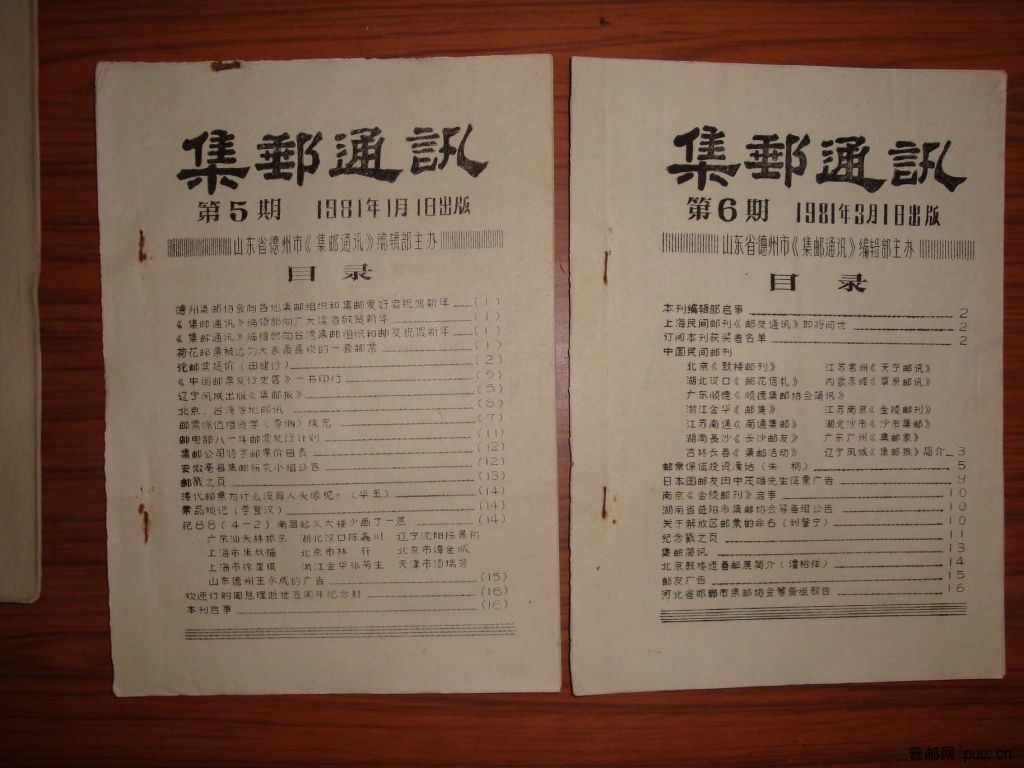 集郵通訊
第5期 1981年1月1日出版
山东省德州市《集邮通讯》编辑部主办
目录
德州集邮协会向各地集邮组织和集邮爱好者祝贺新年 (1)
《集邮通讯》编辑部向广大读者敬贺新年 (1)
《集邮通讯》编辑部向台湾集邮组织和邮友祝贺新年 (1)
荷花邮票被选为大家最喜欢的一套邮票 (1)
论邮票提价(田健行) (2)
《中国邮票发行史略》一书印行 (5)
辽宁凤城出版《集邮报》 (5)
北京、台湾等地邮讯 (6)
邮票保值增资等(李缃)续完 (7)
邮电部八一年邮票发行计划 (11)
集邮公司特字邮票价目表 (12)
安徽亳县集邮研究小组公告 (12)
邮戳之页 (13)
清代邮票为什么没有人头像呢?(华玉) (14)
票品琐记(李登汉) (14)
纪88(4-2)南昌起义大楼少画了一层 (14)
广东汕头林振东 湖北汉口陈鑫川 辽宁沈阳陈景初
上海市朱钦福 北京市林轩 北京市谭金城
上海市徐星瑛 浙江金华张菊生 天津市汤瑞芳
山东德州王永成的广告 (15)
欢迎订购周总理逝世五周年纪念封 (16)
本刊启事 (16)
集郵通訊
第6期 1981年3月1日出版
山东省德州市《集邮通讯》编辑部主办
目录
本刊编辑部启事 2
上海民间邮刊《邮友通讯》即将问世 2
订阅本刊获奖者名单 2
中国民间邮刊
北京《鼓楼邮刊》 江苏常州《天宁邮讯》
湖北汉口《邮花信札》 内蒙赤峰《草原邮讯》
广东顺德《顺德集邮协会简讯》
浙江金华《邮集》 江苏南京《金陵邮刊》
江苏南通《南通集邮》 湖北沙市《沙市集邮》
湖南长沙《长沙邮友》 广东广州《集邮家》
吉林长春《集邮活动》 辽宁凤城《集邮报》简介 3
邮票保值投资漫话(朱桐) 5
日本国邮友田中茂雄先生征票广告 9
南京《金陵邮刊》启事 10
湖南省益阳市集邮协会筹备组公告 10
关于解放区邮票的命名(刘肇宁) 10
纪念戳之页 11
集邮简讯 13
北京鼓楼迎春邮展简介(谭裕祥) 14
邮友广告 15
河北省邯郸市集邮协会筹备组敬告 16
普邮网 puu.cn